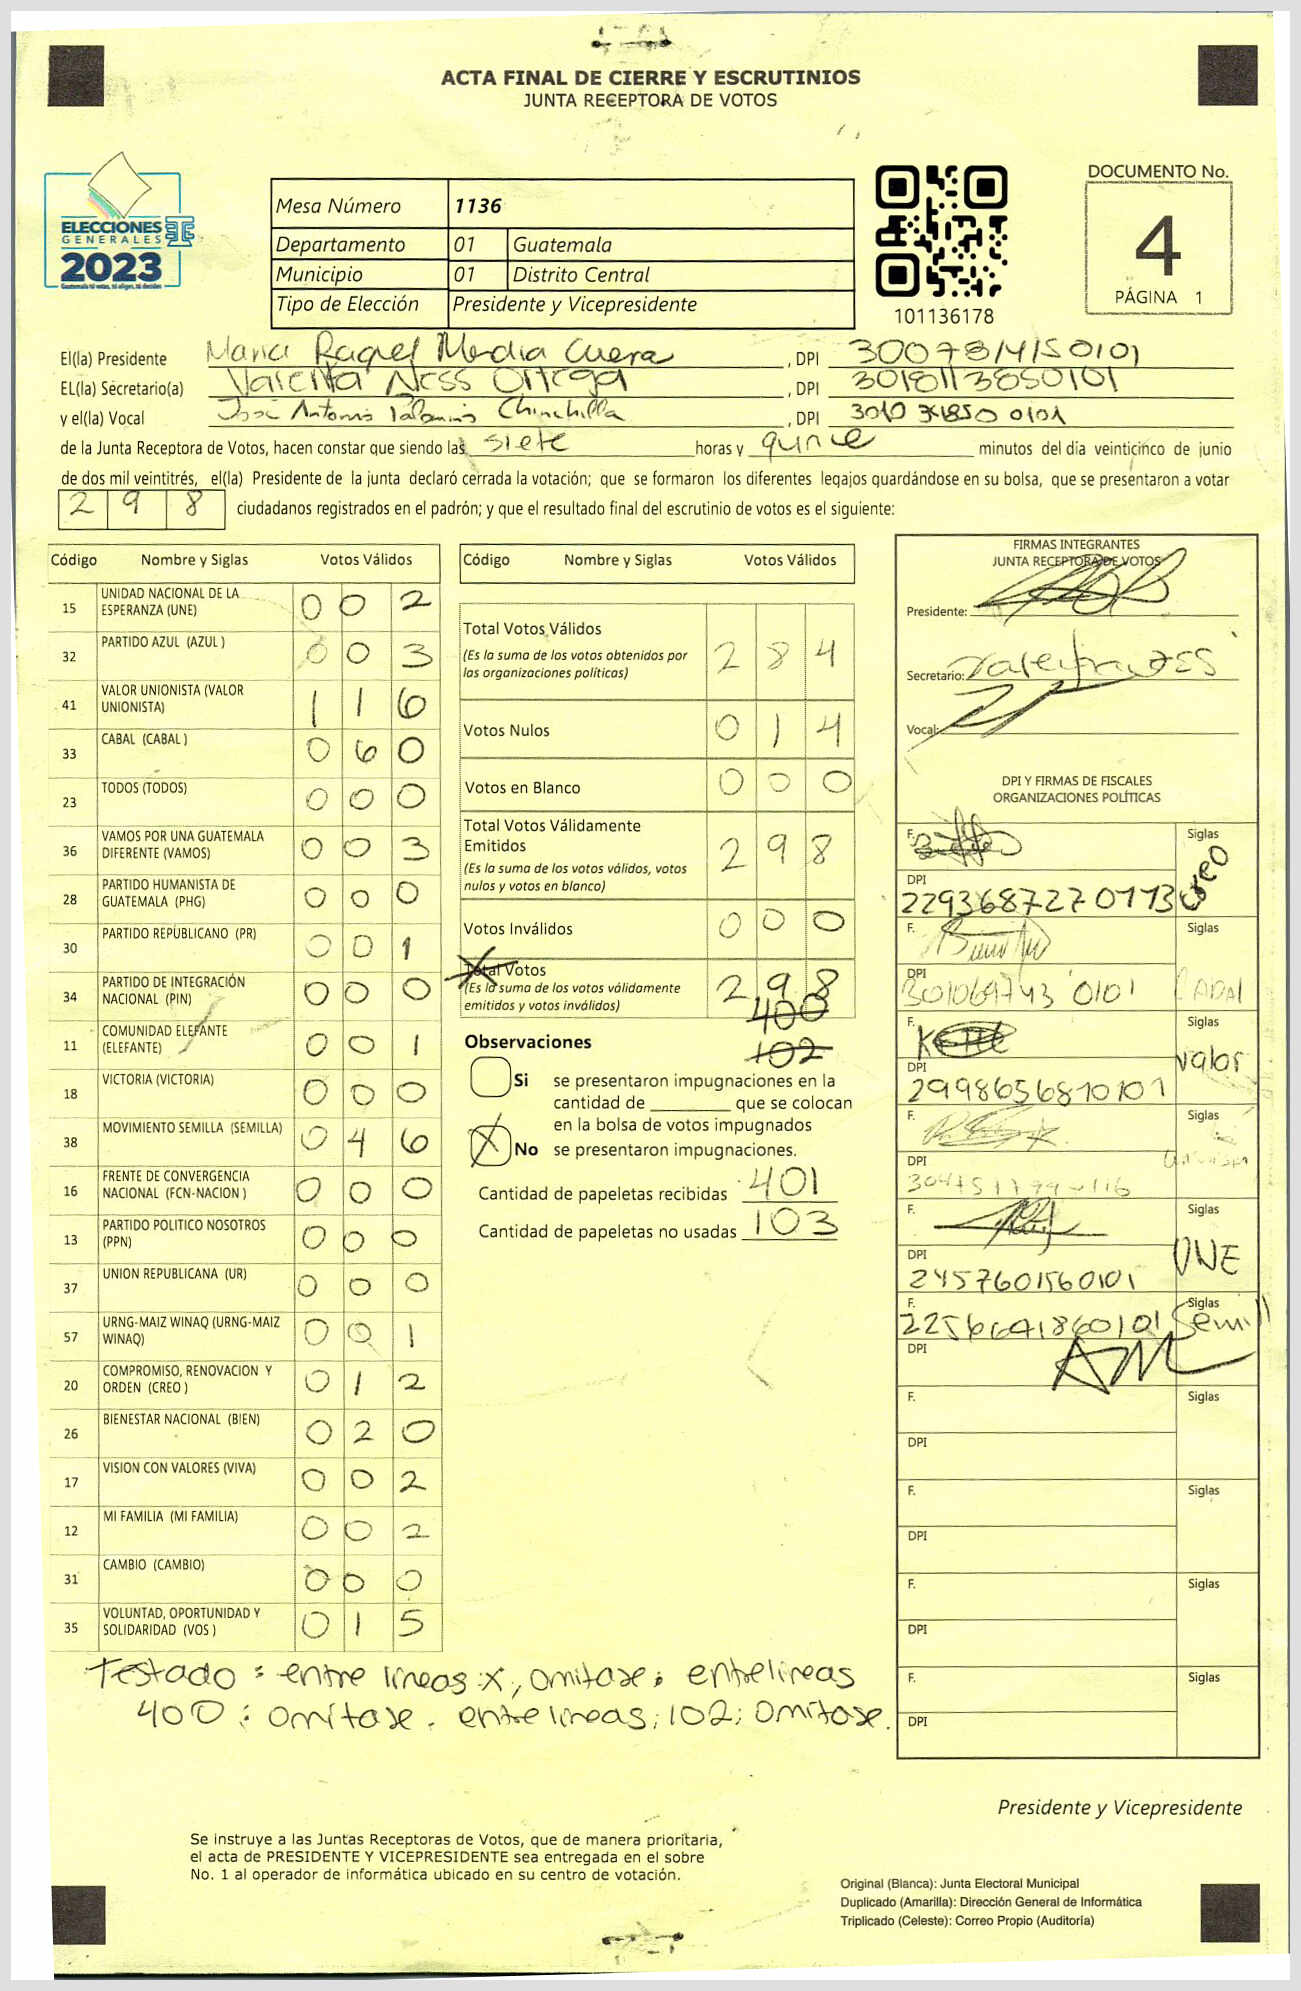 ACTA FINAL DE CIERRE Y ESCRUTINIOS
JUNTA RECEPTORA DE VOTOS
ELECCIONES
GENERALES
2023
Guatemala tú votas, tú eliges, tú decides
Mesa Número 1136
Departamento 01 Guatemala
Municipio 01 Distrito Central
Tipo de Elección Presidente y Vicepresidente
101136178
DOCUMENTO No.
4
PÁGINA 1
El(la) Presidente Maria Raquel Media Cuera, DPI
EL(la) Secretario(a) Ness Ortega, DPI
y el(la) Vocal José Antonio Chinchilla, DPI
de la Junta Receptora de Votos, hacen constar que siendo las siete horas y quince minutos del día veinticinco de junio
de dos mil veintitrés, el(la) Presidente de la junta declaró cerrada la votación; que se formaron los diferentes legajos guardándose en su bolsa, que se presentaron a votar
298 ciudadanos registrados en el padrón; y que el resultado final del escrutinio de votos es el siguiente:
Código Nombre y Siglas Votos Válidos
15 UNIDAD NACIONAL DE LA ESPERANZA (UNE) 0 0 2
32 PARTIDO AZUL (AZUL ) 0 0 3
41 VALOR UNIONISTA (VALOR UNIONISTA) 1 1 6
33 CABAL (CABAL ) 0 6 0
23 TODOS (TODOS) 0 0 0
36 VAMOS POR UNA GUATEMALA DIFERENTE (VAMOS) 0 0 3
28 PARTIDO HUMANISTA DE GUATEMALA (PHG) 0 0 0
30 PARTIDO REPUBLICANO (PR) 0 0 1
34 PARTIDO DE INTEGRACIÓN NACIONAL (PIN) 0 0 0
11 COMUNIDAD ELEFANTE (ELEFANTE) 0 0 1
18 VICTORIA (VICTORIA) 0 0 0
38 MOVIMIENTO SEMILLA (SEMILLA) 0 4 6
16 FRENTE DE CONVERGENCIA NACIONAL (FCN-NACION ) 0 0 0
13 PARTIDO POLITICO NOSOTROS (PPN) 0 0 0
37 UNION REPUBLICANA (UR) 0 0 0
57 URNG-MAIZ WINAQ (URNG-MAIZ WINAQ) 0 0 1
20 COMPROMISO, RENOVACION Y ORDEN (CREO ) 0 1 2
26 BIENESTAR NACIONAL (BIEN) 0 2 0
17 VISION CON VALORES (VIVA) 0 0 2
12 MI FAMILIA (MI FAMILIA) 0 0 2
31 CAMBIO (CAMBIO) 0 0 0
35 VOLUNTAD, OPORTUNIDAD Y SOLIDARIDAD (VOS ) 0 1 5
Código Nombre y Siglas Votos Válidos
Total Votos Válidos 2 8 4
(Es la suma de los votos obtenidos por
las organizaciones políticas)
Votos Nulos 0 1 4
Votos en Blanco 0 0 0
Total Votos Válidamente
Emitidos 2 9 8
(Es la suma de los votos válidos, votos
nulos y votos en blanco)
Votos Inválidos 0 0 0
Total Votos 2 9 8
(Es la suma de los votos válidamente
emitidos y votos inválidos)
400
102
Observaciones
Si se presentaron impugnaciones en la
cantidad de ________ que se colocan
en la bolsa de votos impugnados
X No se presentaron impugnaciones.
Cantidad de papeletas recibidas 401
Cantidad de papeletas no usadas 103
FIRMAS INTEGRANTES
JUNTA RECEPTORA DE VOTOS
Presidente:
Secretario:
Vocal:
DPI Y FIRMAS DE FISCALES
ORGANIZACIONES POLÍTICAS
F. Siglas
DPI
2293687270113 Creo
F. Siglas
DPI
F. Siglas
valor
DPI
2998656810101
F. Siglas
DPI
F. Siglas
UNE
DPI
2457601560101
F. Siglas
2256641860101 Semill
DPI
F. Siglas
DPI
F. Siglas
DPI
F. Siglas
DPI
F. Siglas
DPI
Testado: entre lineas x, omitase; entrelineas
400: omitase. entrelineas; 102; omitase.
Presidente y Vicepresidente
Se instruye a las Juntas Receptoras de Votos, que de manera prioritaria,
el acta de PRESIDENTE Y VICEPRESIDENTE sea entregada en el sobre
No. 1 al operador de informática ubicado en su centro de votación.
Original (Blanca): Junta Electoral Municipal
Duplicado (Amarilla): Dirección General de Informática
Triplicado (Celeste): Correo Propio (Auditoría)